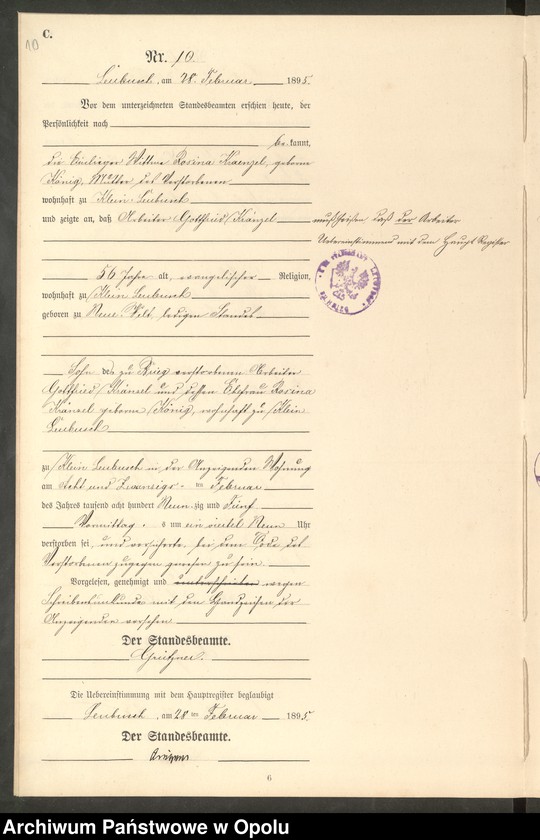 C.
10
Nr. 10.
Leubusch, am 28. Februar 1895.
Vor dem unterzeichneten Standesbeamten erschien heute, der
Persönlichkeit nach
bekannt,
die Einlieger Wittwe Rosina Kaenzel, geborne
König, Mutter des Verstorbenen
wohnhaft zu Klein Leubusch
und zeigte an, daß Arbeiter Gottfried Känzel
daß der Arbeiter
Uebereinstimmend mit dem Haupt Register
56 Jahre alt, evangelischer Religion,
wohnhaft zu Klein Leubusch
geboren zu Neu ledigen Standes
Sohn des zu Brieg verstorbenen Arbeiter
Gottfried Känzel und dessen Ehefrau Rosina
Känzel geborne König, wohnhaft zu Klein
Leubusch
zu Klein Leubusch in der Anzeigenden Wohnung
am acht und zwanzigsten Februar
des Jahres tausend acht hundert Neunzig und Fünf
Vormittag s um ein viertel Neun Uhr
verstorben sei, und versicherte, bei dem Tode des
Verstorbenen zugegen gewesen zu sein.
Vorgelesen, genehmigt und unterschrieben wegen
Schreibensunkunde mit den Handzeichen der
Anzeigenden versehen
Der Standesbeamte.
Die Uebereinstimmung mit dem Hauptregister beglaubigt
Leubusch, am 28 ten Februar 1895.
Der Standesbeamte.
6
Archiwum Państwowe w Opolu